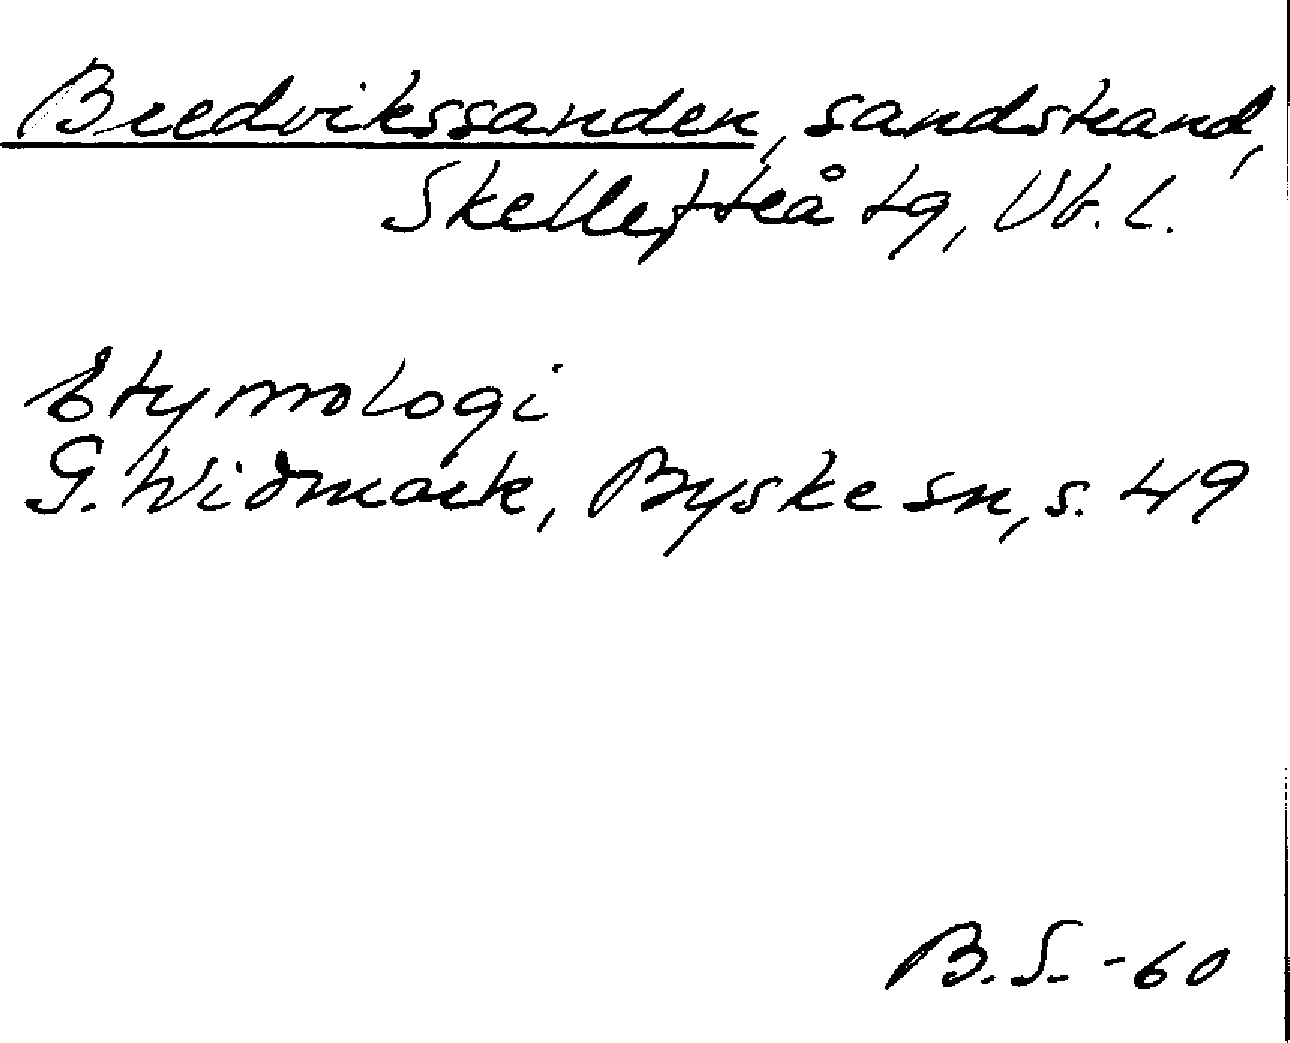 Bredvikssanden, sandstrand,
Skellefteå tg, Vb. l.
Etymologi
G. Widmark, Byske sn, s. 49
B. S. -60